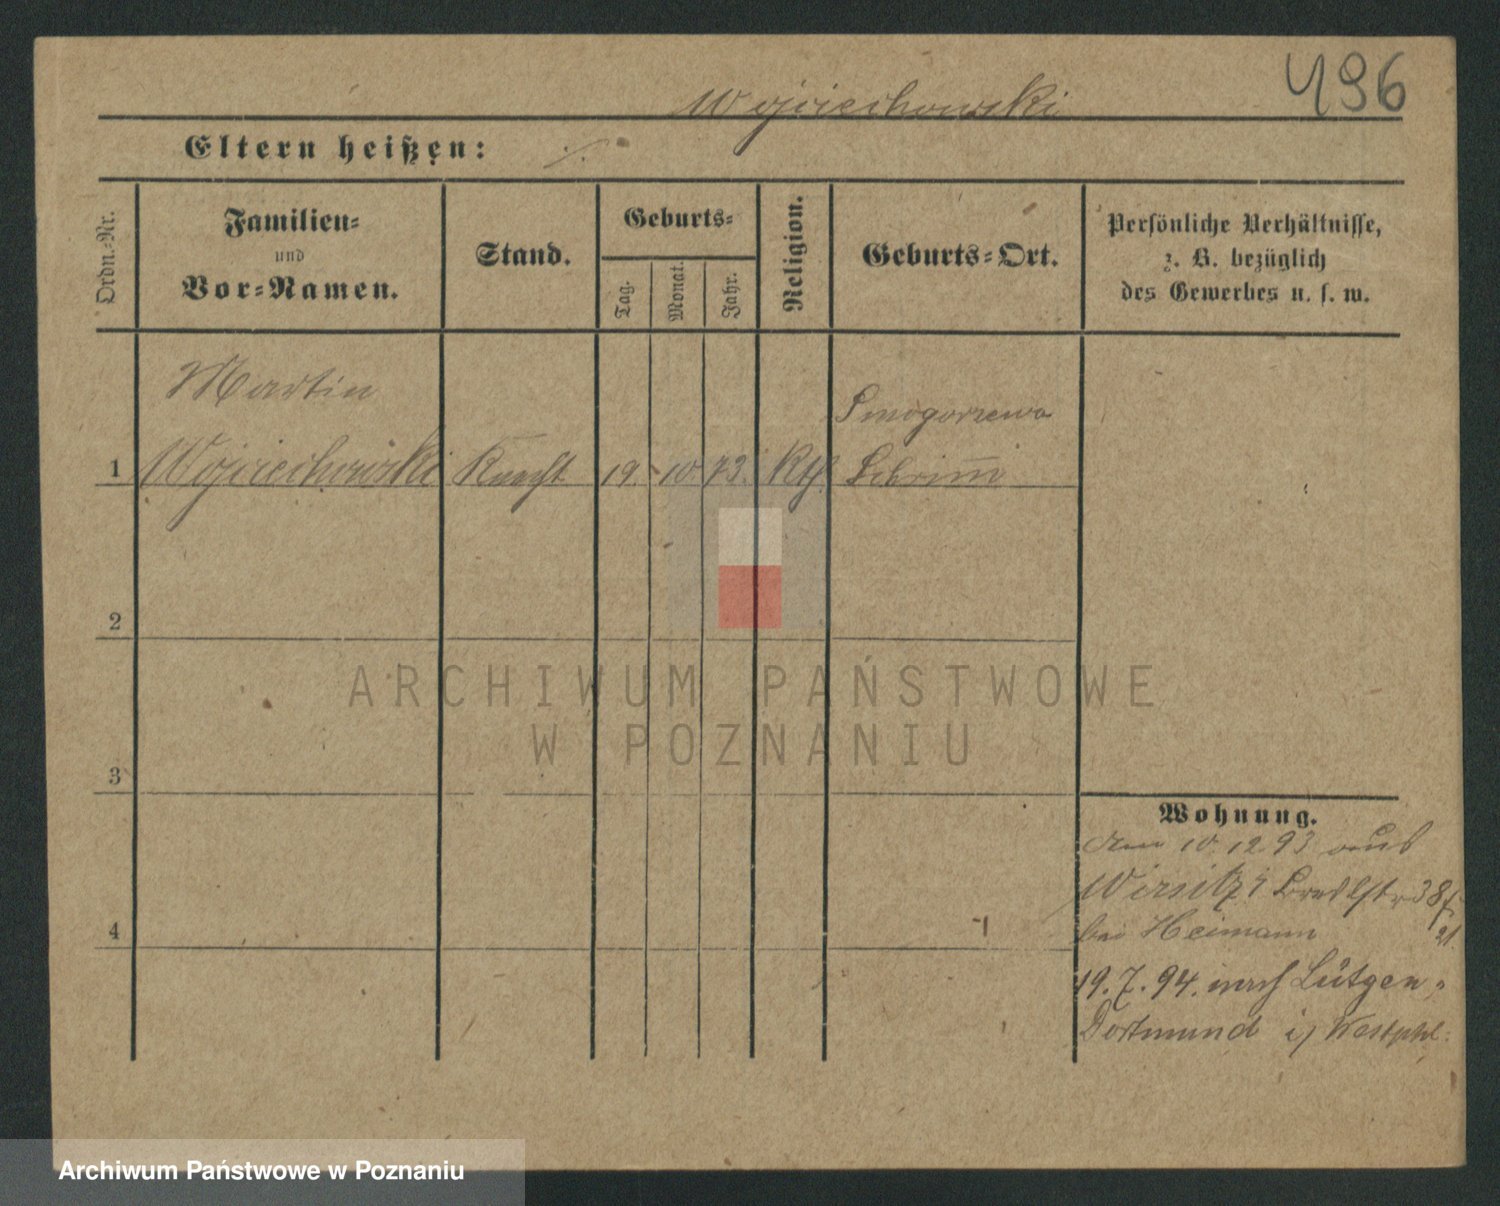 496
Wojciechowski
Eltern heißen: ./.
Ordn.-Nr.
Familien-
und
Vor-Namen.
Stand.
Geburts-
Tag.
Monat.
Jahr.
Religion.
Geburts-Ort.
Persönliche Verhältnisse,
z. B. bezüglich
des Gewerbes u. s. w.
Martin
Smogorzewo
1 Wojciechowski Knecht 19. 10. 73. Kth. Schrimm
2
3
4
Wohnung.
10.12.93 aus
Wirsitz
bei Heimann
19.7.94. nach Lütgen-
Dortmund i/ Westphl.
ARCHIWUM PAŃSTWOWE
W POZNANIU
Archiwum Państwowe w Poznaniu